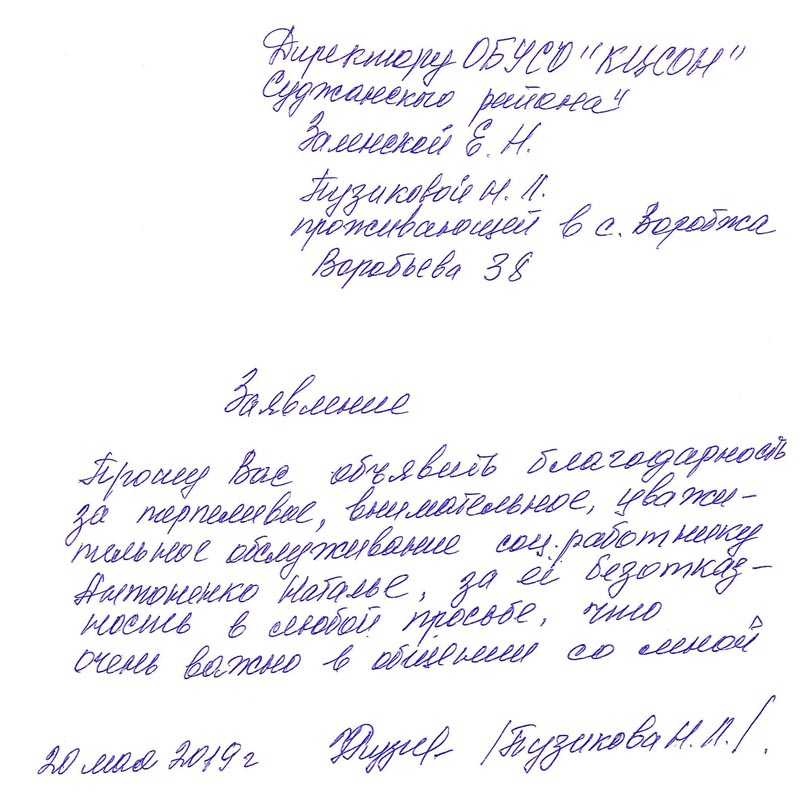 Директору ОБУСО "КЦСОН"
Суджанского района"
Заменской Е. Н.
Пузиковой Н. П.
проживающей в с. Воробжа
Воробьева 38
Заявление
Прошу Вас объявить благодарность
за терпеливое, внимательное, уважи-
тельное обслуживание соц. работнику
Антоненко Наталье, за её безотказ-
ность в любой просьбе, что
очень важно в общении со мной
20 мая 2019 г /Пузикова Н. П./.